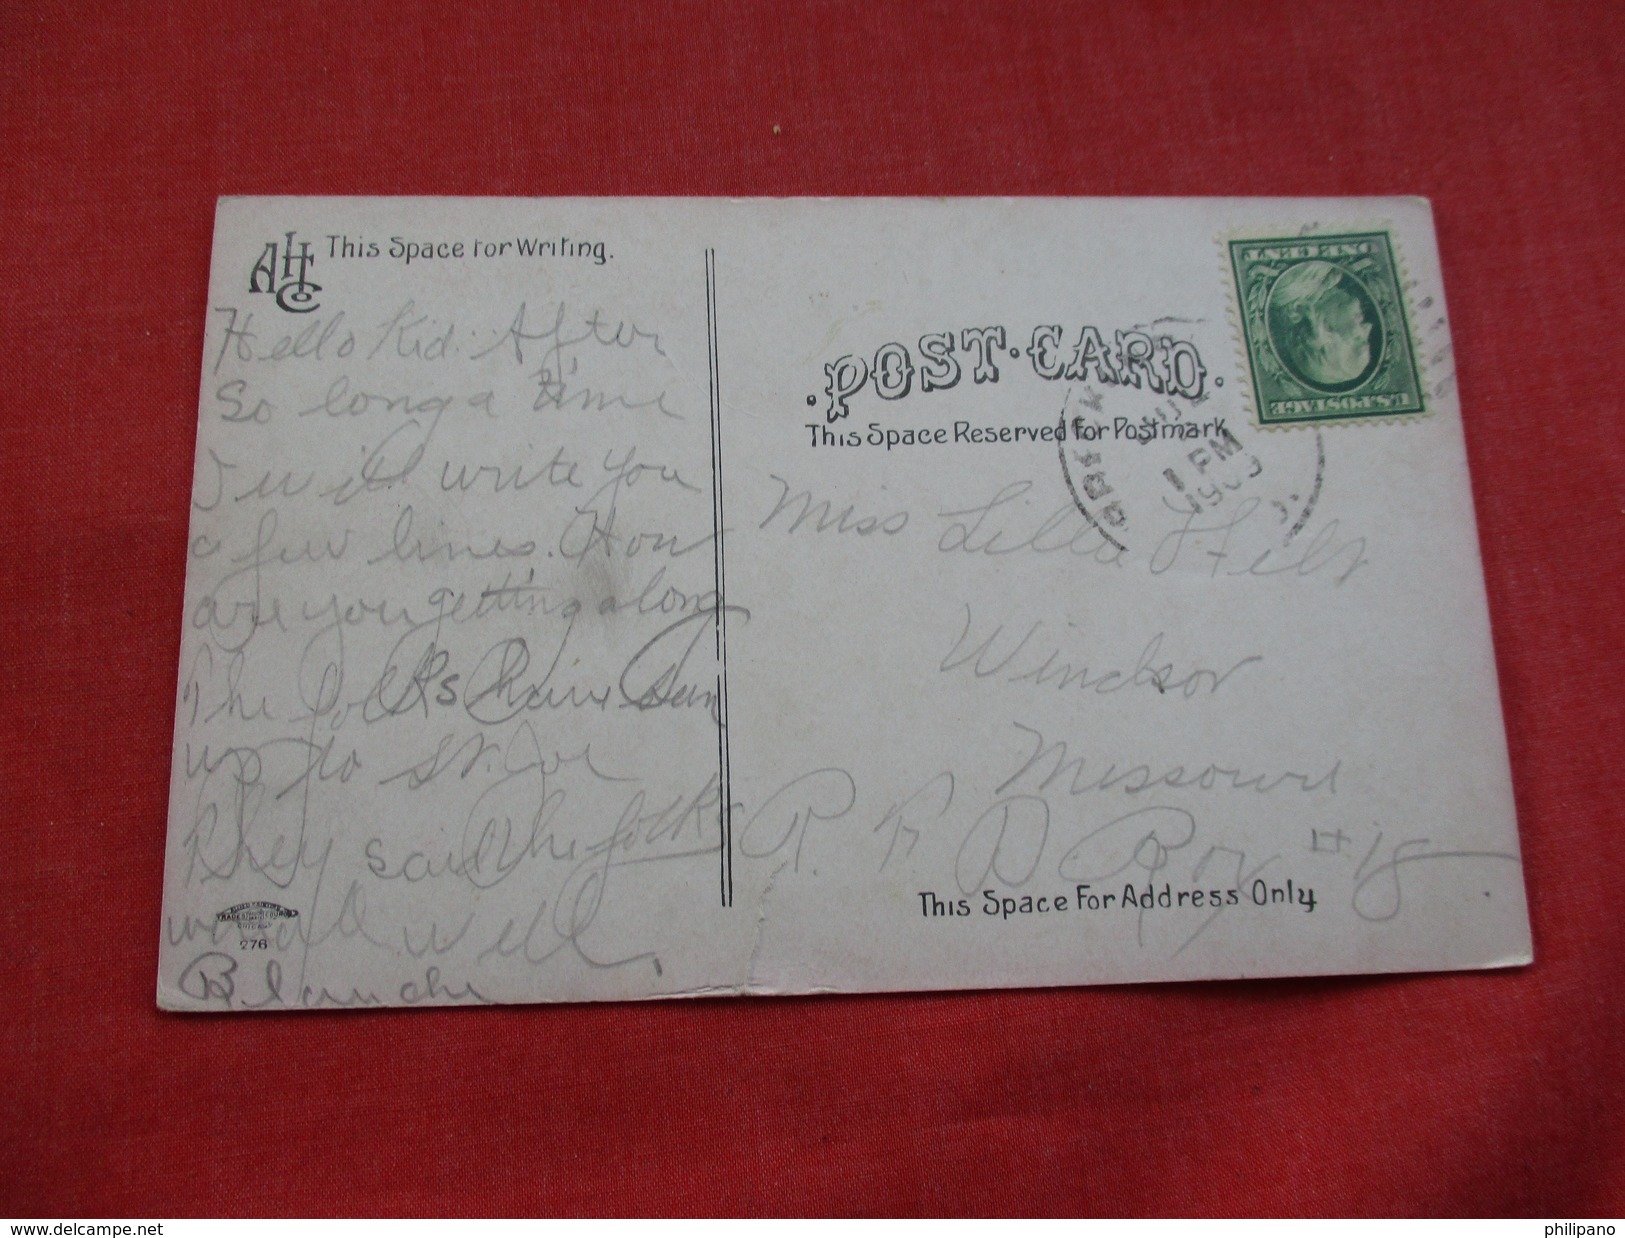 AHCo This Space for Writing.
Hello Kid. After
So long a time
I will write you
a few lines. How
are you getting along
The folks have
up to St. Joe
They said the folks
was all well.
Blanche
276
U.S. POSTAGE
ONE CENT
POST-CARD.
This Space Reserved for Postmark
1 PM
1909
Miss Lilla
Windsor
Missouri
R. F. D.
This Space For Address Only
www.delcampe.net
philipano